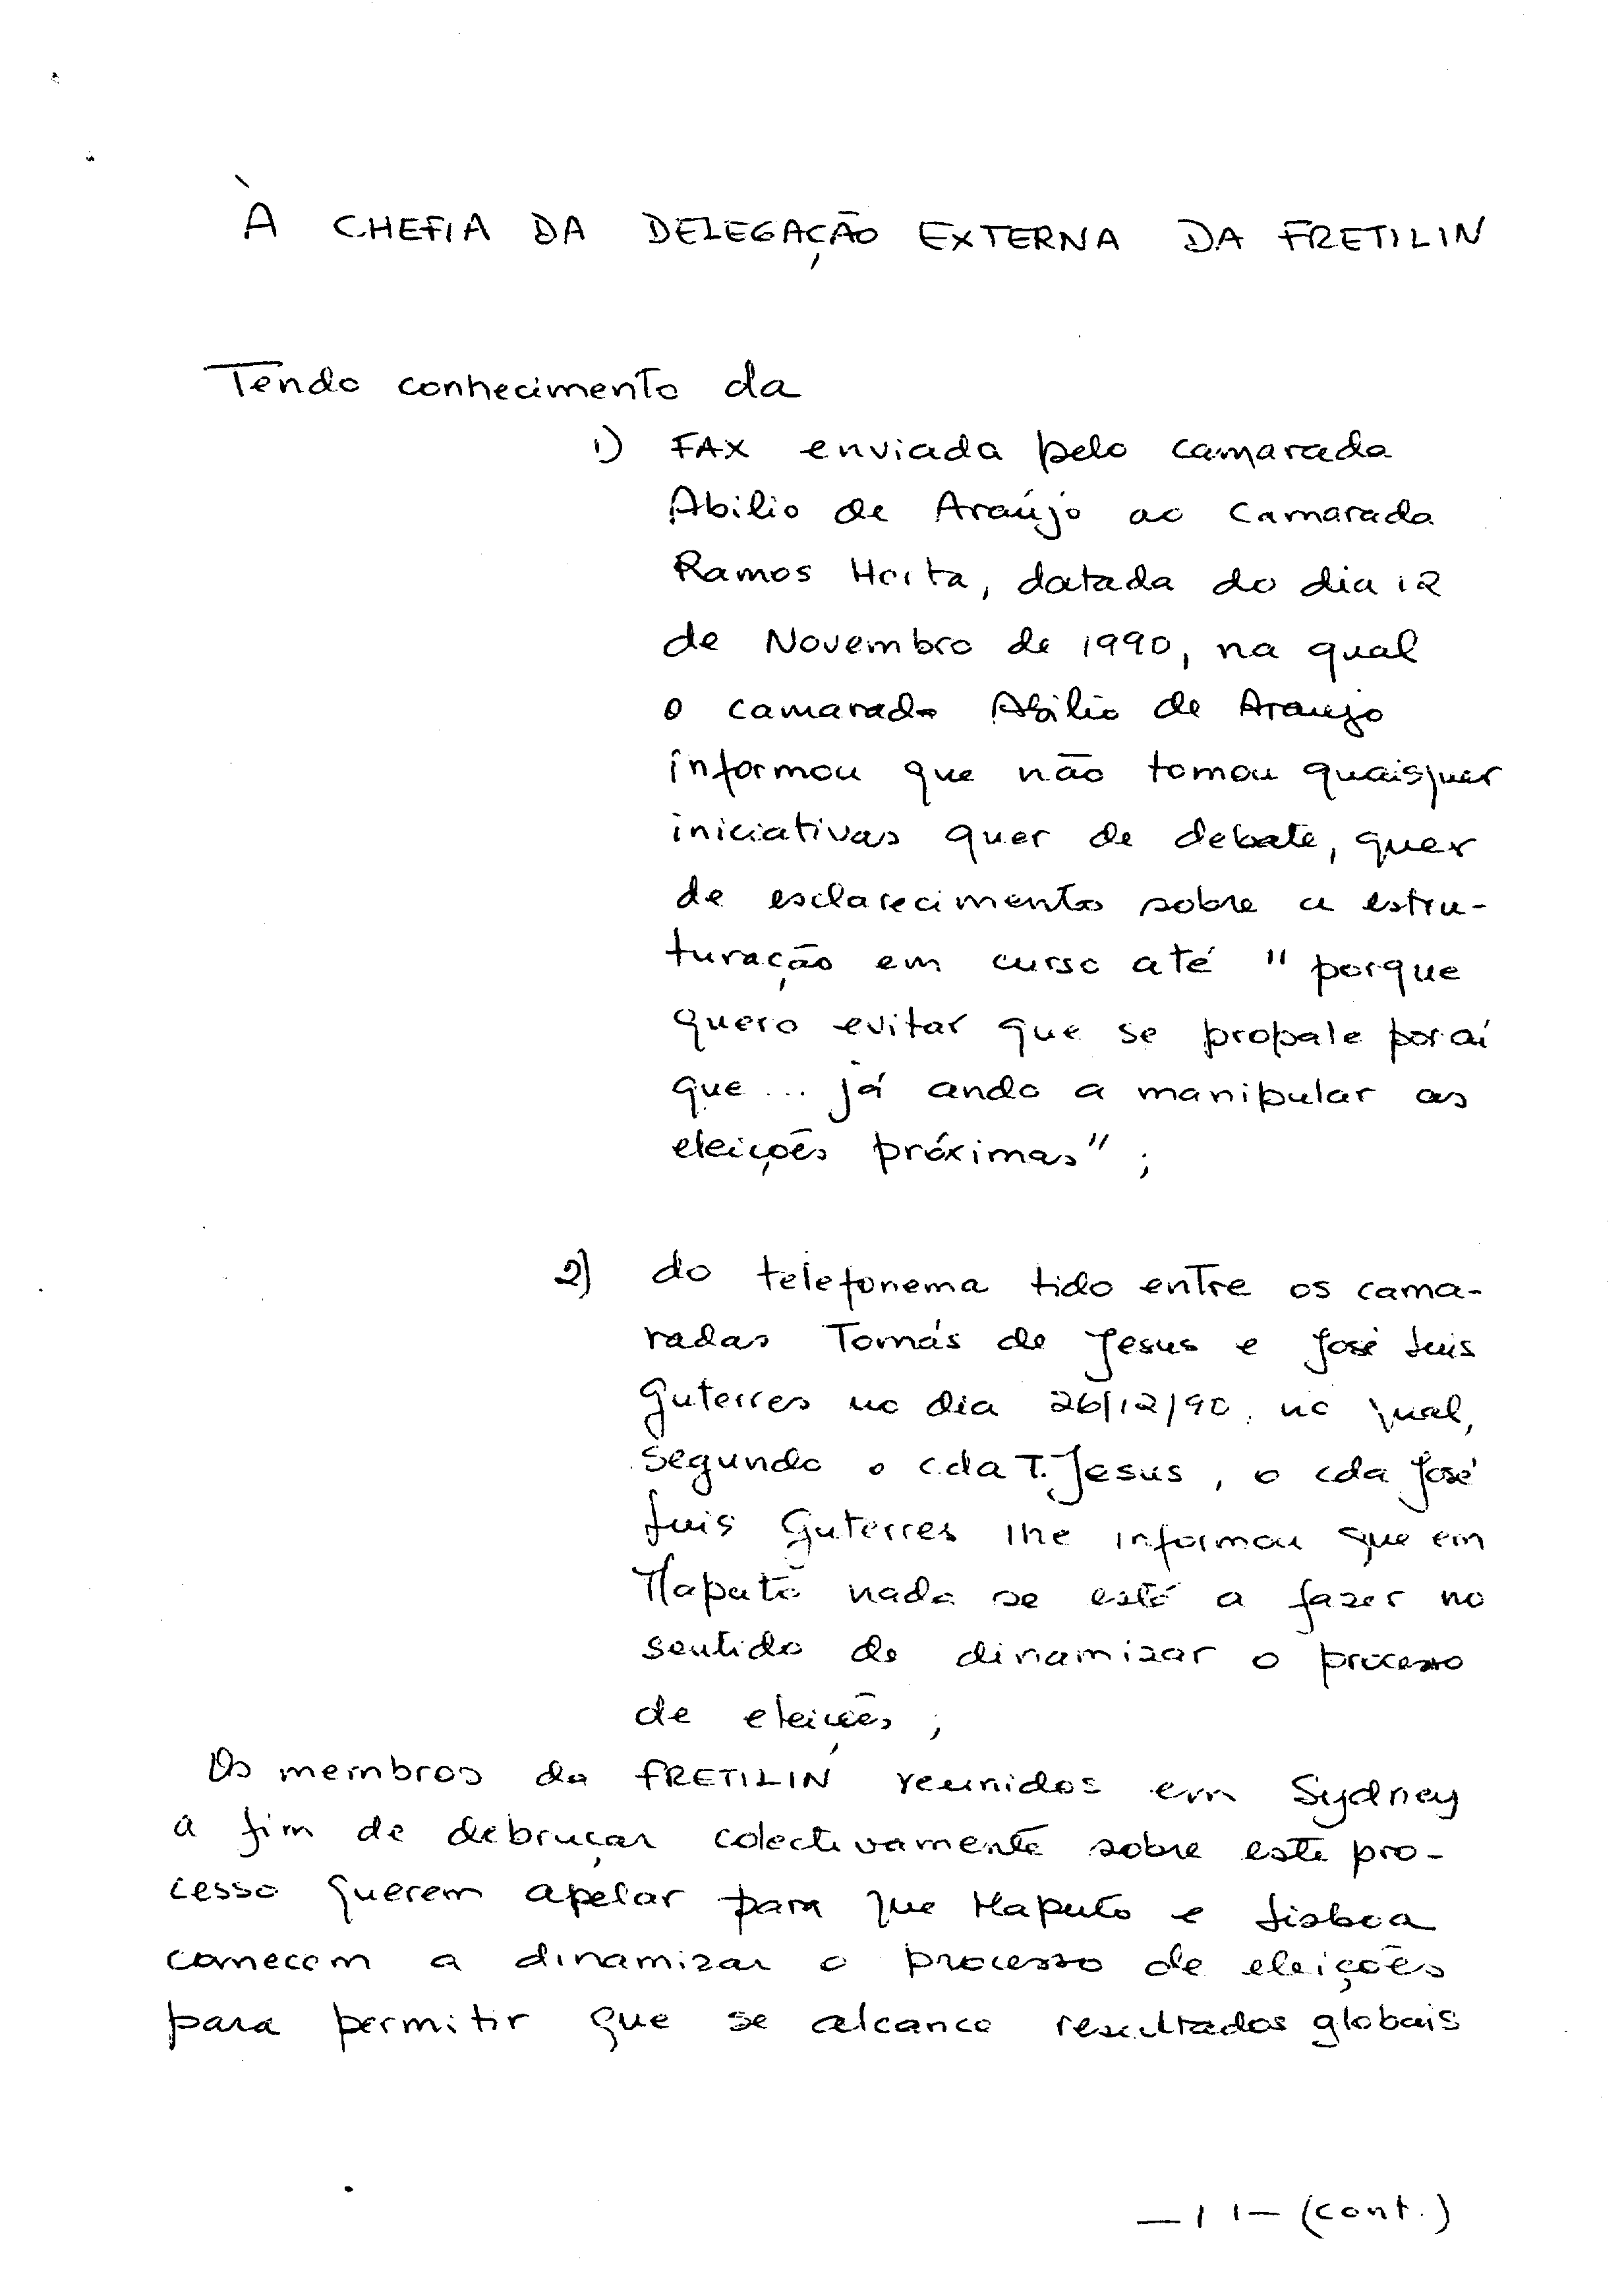 À CHEFIA DA DELEGAÇÃO EXTERNA DA FRETILIN
Tendo conhecimento da
1) FAX enviada pelo camarada
Abilio de Araújo ao camarada
Ramos Horta, datada do dia 12
de Novembro de 1990, na qual
o camarada Abilio de Araujo
informou que não tomou quaisquer
iniciativas quer de debate, quer
de esclarecimento sobre a estru-
turação em curso até "porque
quero evitar que se propale por aí
que ... já ando a manipular as
eleições próximas" ;
2) do telefonema tido entre os cama-
radas Tomás de Jesus e José Luis
Guterres no dia 26/12/90, no qual,
segundo o c.da T. Jesus, o cda José
Luis Guterres lhe informou que em
Maputo nada se está a fazer no
sentido de dinamizar o processo
de eleições ;
Os membros da FRETILIN reunidos em Sydney
a fim de debruçar colectivamente sobre este pro-
cesso querem apelar para que Maputo e Lisboa
comecem a dinamizar o processo de eleições
para permitir que se alcance resultados globais
—11— (cont.)